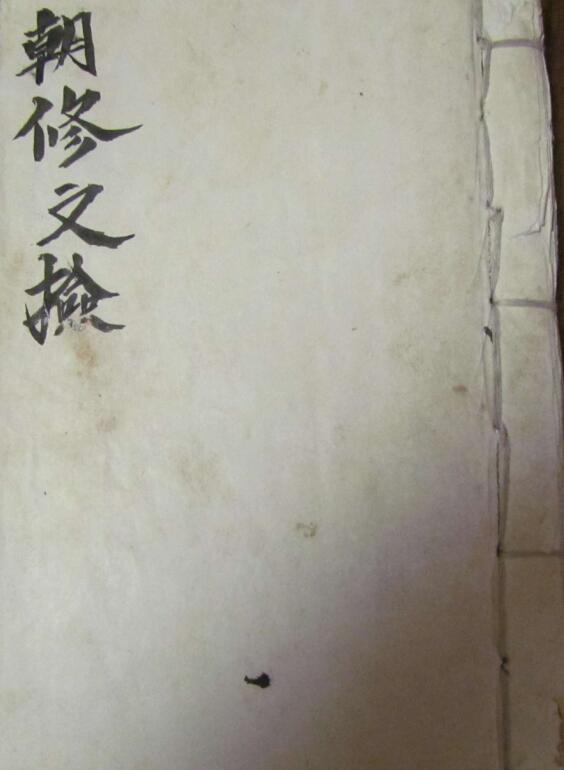 朝修文撿